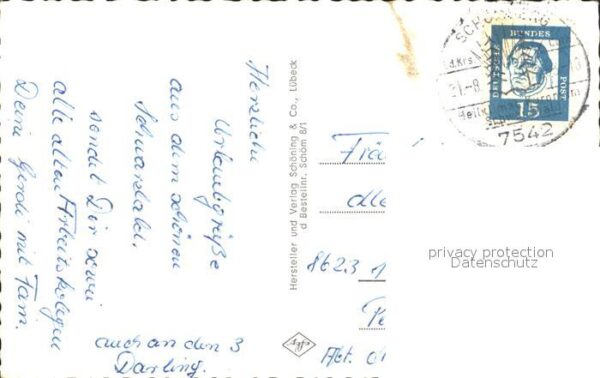 Herzliche
Urlaubsgrüße
aus dem schönen
Schwarzwald.
sendet Dir sowie
alle alten Arbeitskolegen
Deine Gerdi mit Fam.
auch an den 3
Darling.
Hersteller und Verlag Schöning & Co., Lübeck
d Bestellnr. Schöm 8/1
SCHÖMBERG
7542
DEUTSCHE BUNDES POST
15
8623
Abt.
privacy protection
Datenschutz